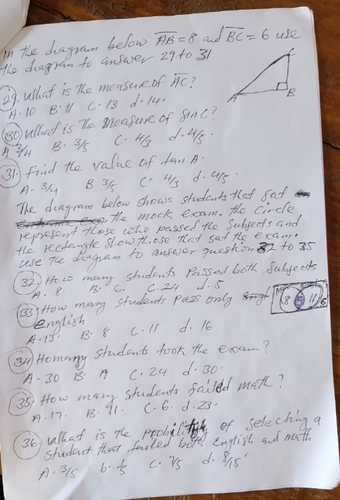 In the diagram below AB = 8 and BC = 6 use
the diagram to answer 29 to 31
C
A
B
29. What is the measure of AC?
A. 10 B. 11 C. 13 d. 14.
30. What is the measure of sin C?
A 3/4 B. 3/5 C. 4/3 d. 4/5.
31. Find the value of tan A.
A. 3/4 B 3/5 C. 4/3 d. 4/5.
The diagram below shows students that sat
the mock exam. the circle
represent those who passed the subjects and
the rectangle show those that sat the exam.
use the diagram to answer question 32 to 35
32. How many students Passed both subjects
A. 8 B. 6. C. 24 d. 5
33. How many students pass only
English
8 11
A. 13. B. 8 C. 11 d. 16
34. Homany students took the exam?
A. 30 B. C. 24 d. 30.
35. How many students failed math?
A. 17. B. 11. C. 6. d. 23.
36. What is the of selecting a
student that failed both English and math
A. 3/5 b. 1/5 C. d. 8/15